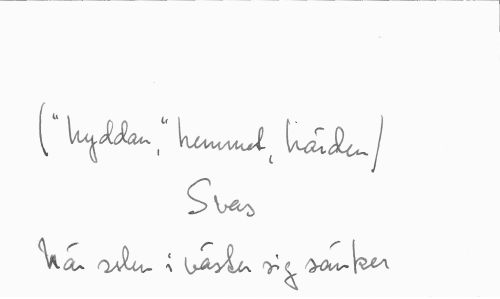 ("hyddan," hemmet, härden)
Svas
När solen i väster sig sänker